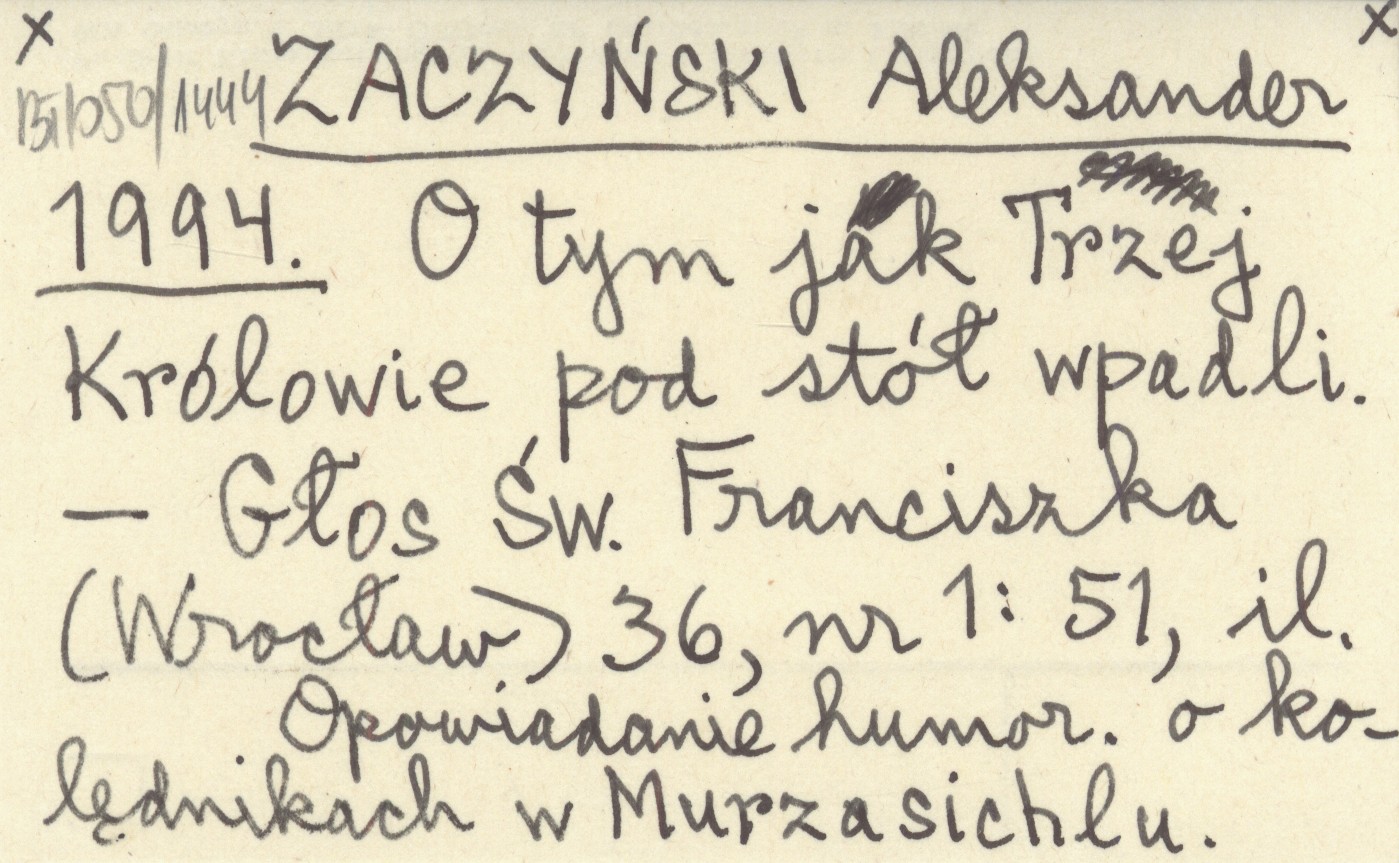 x x
BI/050/1444 ZACZYŃSKI Aleksander
1994. O tym jak Trzej
Królowie pod stół wpadli.
— Głos Św. Franciszka
(Wrocław) 36, nr 1: 51, il.
Opowiadanie humor. o ko-
lędnikach w Murzasichlu.